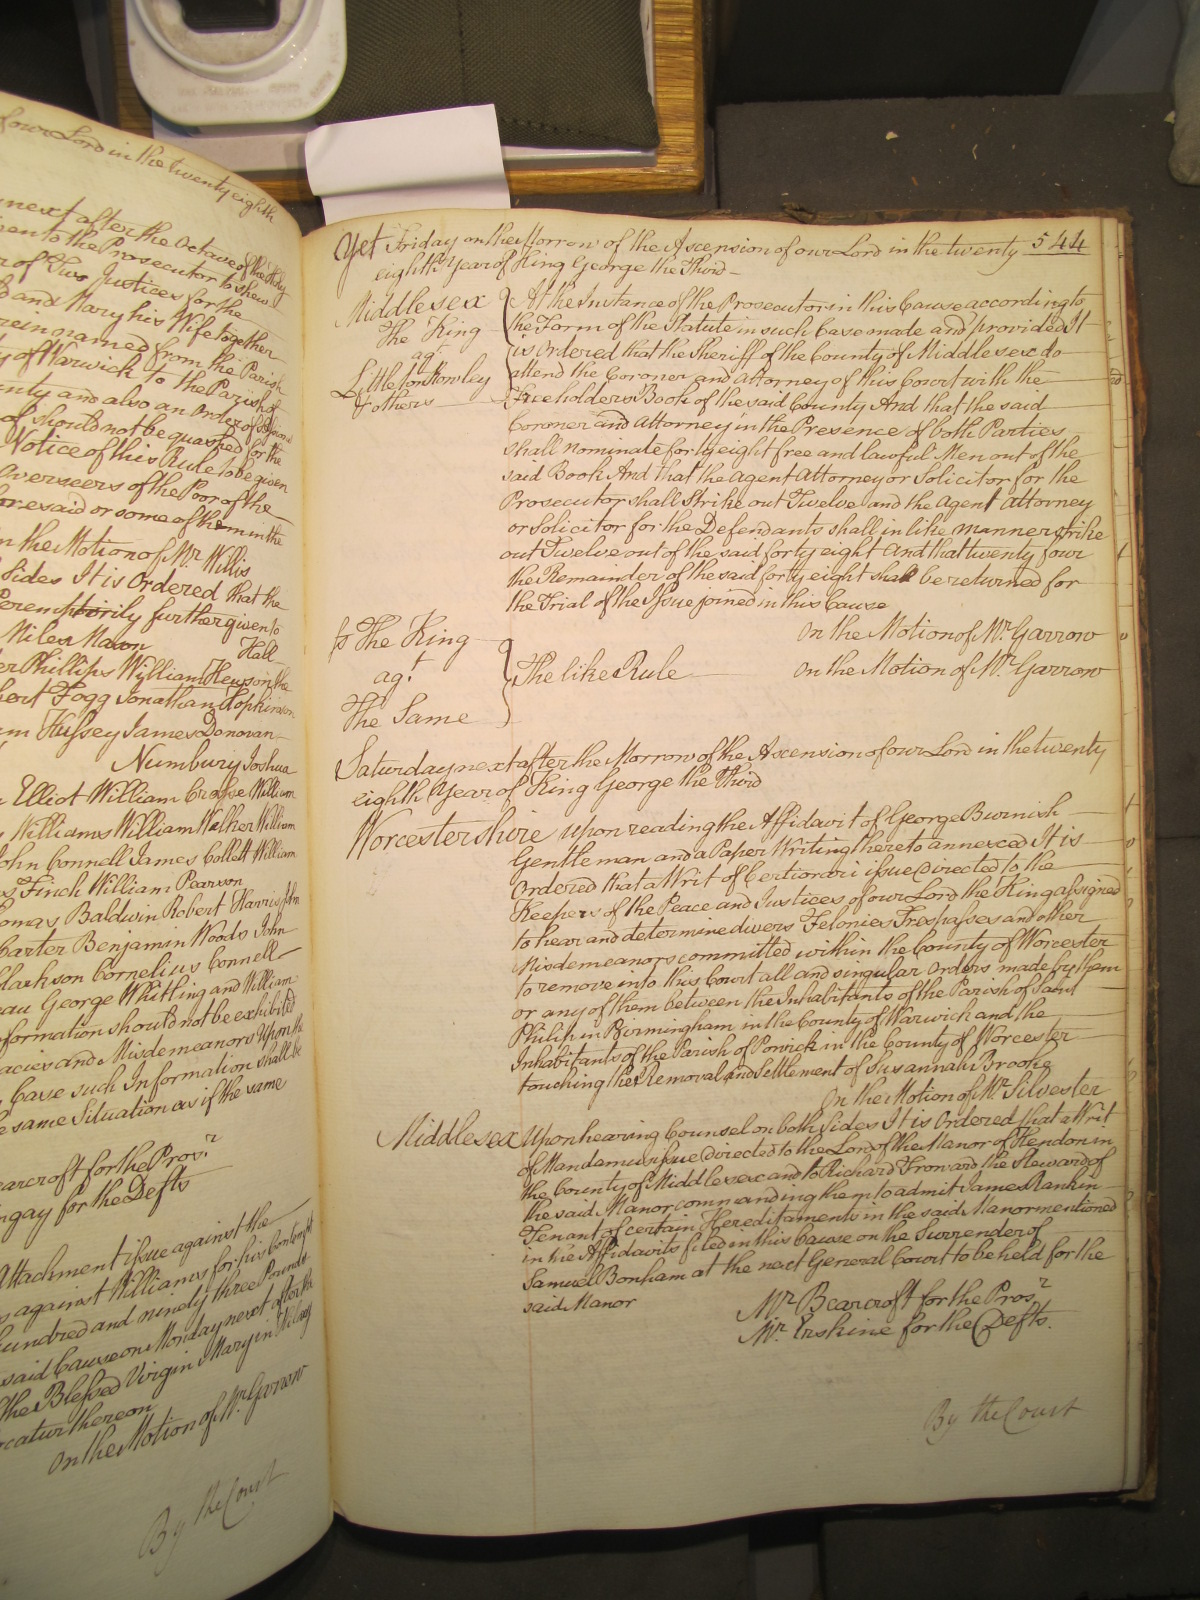 of our Lord in the twenty eighth
next after the Octave of the Holy
to the Prosecutor to shew
of Two Justices for the
and Mary his Wife together
therein named from the Parish
of Warwick to the Parish of
and also an Order of Sessions
of should not be quashed for the
Notice of this Rule to be given
Overseers of the Poor of the
aforesaid or some of them in the
On the Motion of Mr. Willis
Sides It is Ordered that the
further given to
Miles Mason Hall
Phillips William Hewson the
Fogg Jonathan Hopkinson
Hussey James Donovan
Numbury Joshua
Elliot William Crosse William
Williams William Walker William
John Connell James Collett William
Finch William Pearson
Thomas Baldwin Robert Harris John
Carter Benjamin Woods John
Clarkson Cornelius Connell
George Whitling and William
Information should not be exhibited
and Misdemeanors Upon the
Case such Information shall be
same Situation as if the same
Bearcroft for the Prosr.
for the Defts
Attachment issue against the
against Williams for his Contempt
hundred and ninety three Pounds
said Cause on Monday next after the
the Blessed Virgin Mary in
thereon
On the Motion of Mr. Garrow
By the Court
Yet Friday on the Morrow of the Ascension of our Lord in the twenty 544
eighth Year of King George the Third
Middlesex At the Instance of the Prosecutor in this Cause according to
The King the Form of the Statute in such Case made and provided It
agt. is Ordered that the Sheriff of the County of Middlesex do
Littleton Rowley attend the Coroner and Attorney of this Court with the
& others Freeholders Book of the said County And that the said
Coroner and Attorney in the Presence of both Parties
shall nominate forty eight free and lawful Men out of the
said Book And that the Agent Attorney or Solicitor for the
Prosecutor shall Strike out Twelve and the Agent Attorney
or Solicitor for the Defendants shall in like manner strike
out Twelve out of the said forty eight And that twenty four
the Remainder of the said forty eight shall be returned for
the Trial of the Issue joined in this Cause
On the Motion of Mr. Garrow
The King
agt. The like Rule On the Motion of Mr. Garrow
The Same
Saturday next after the Morrow of the Ascension of our Lord in the twenty
eighth Year of King George the Third
Worcestershire Upon reading the Affidavit of George Burnish
Gentleman and a Paper Writing thereto annexed It is
Ordered that a Writ of Certiorari issue Directed to the
Keepers of the Peace and Justices of our Lord the King assigned
to hear and determine divers Felonies Trespasses and other
Misdemeanors committed within the County of Worcester
to remove into this Court all and singular Orders made by them
or any of them between the Inhabitants of the Parish of Saint
Philip in Birmingham in the County of Warwick and the
Inhabitants of the Parish of Powick in the County of Worcester
touching the Removal and Settlement of Susannah Brooke
On the Motion of Mr. Silvester
Middlesex Upon hearing Counsel on both Sides It is Ordered that a Writ
of Mandamus issue Directed to the Lord of the Manor of Hendon in
the County of Middlesex and to Richard Froward the Steward of
the said Manor commanding them to admit James Rankin
Tenant of certain Hereditaments in the said Manor mentioned
in the Affidavits filed in this Cause on the Surrender of
Samuel Bonham at the next General Court to be held for the
said Manor
Mr. Bearcroft for the Prosr.
Mr. Erskine for the Defts.
By the Court